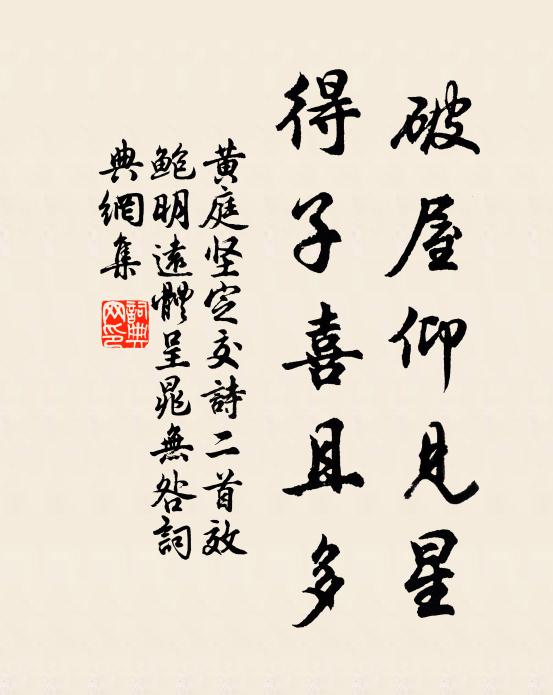 破屋仰見星
得子喜且多
黃庭坚定交詩二首效
鮑明遠體呈晁無咎詞
典網集
詞典
网印